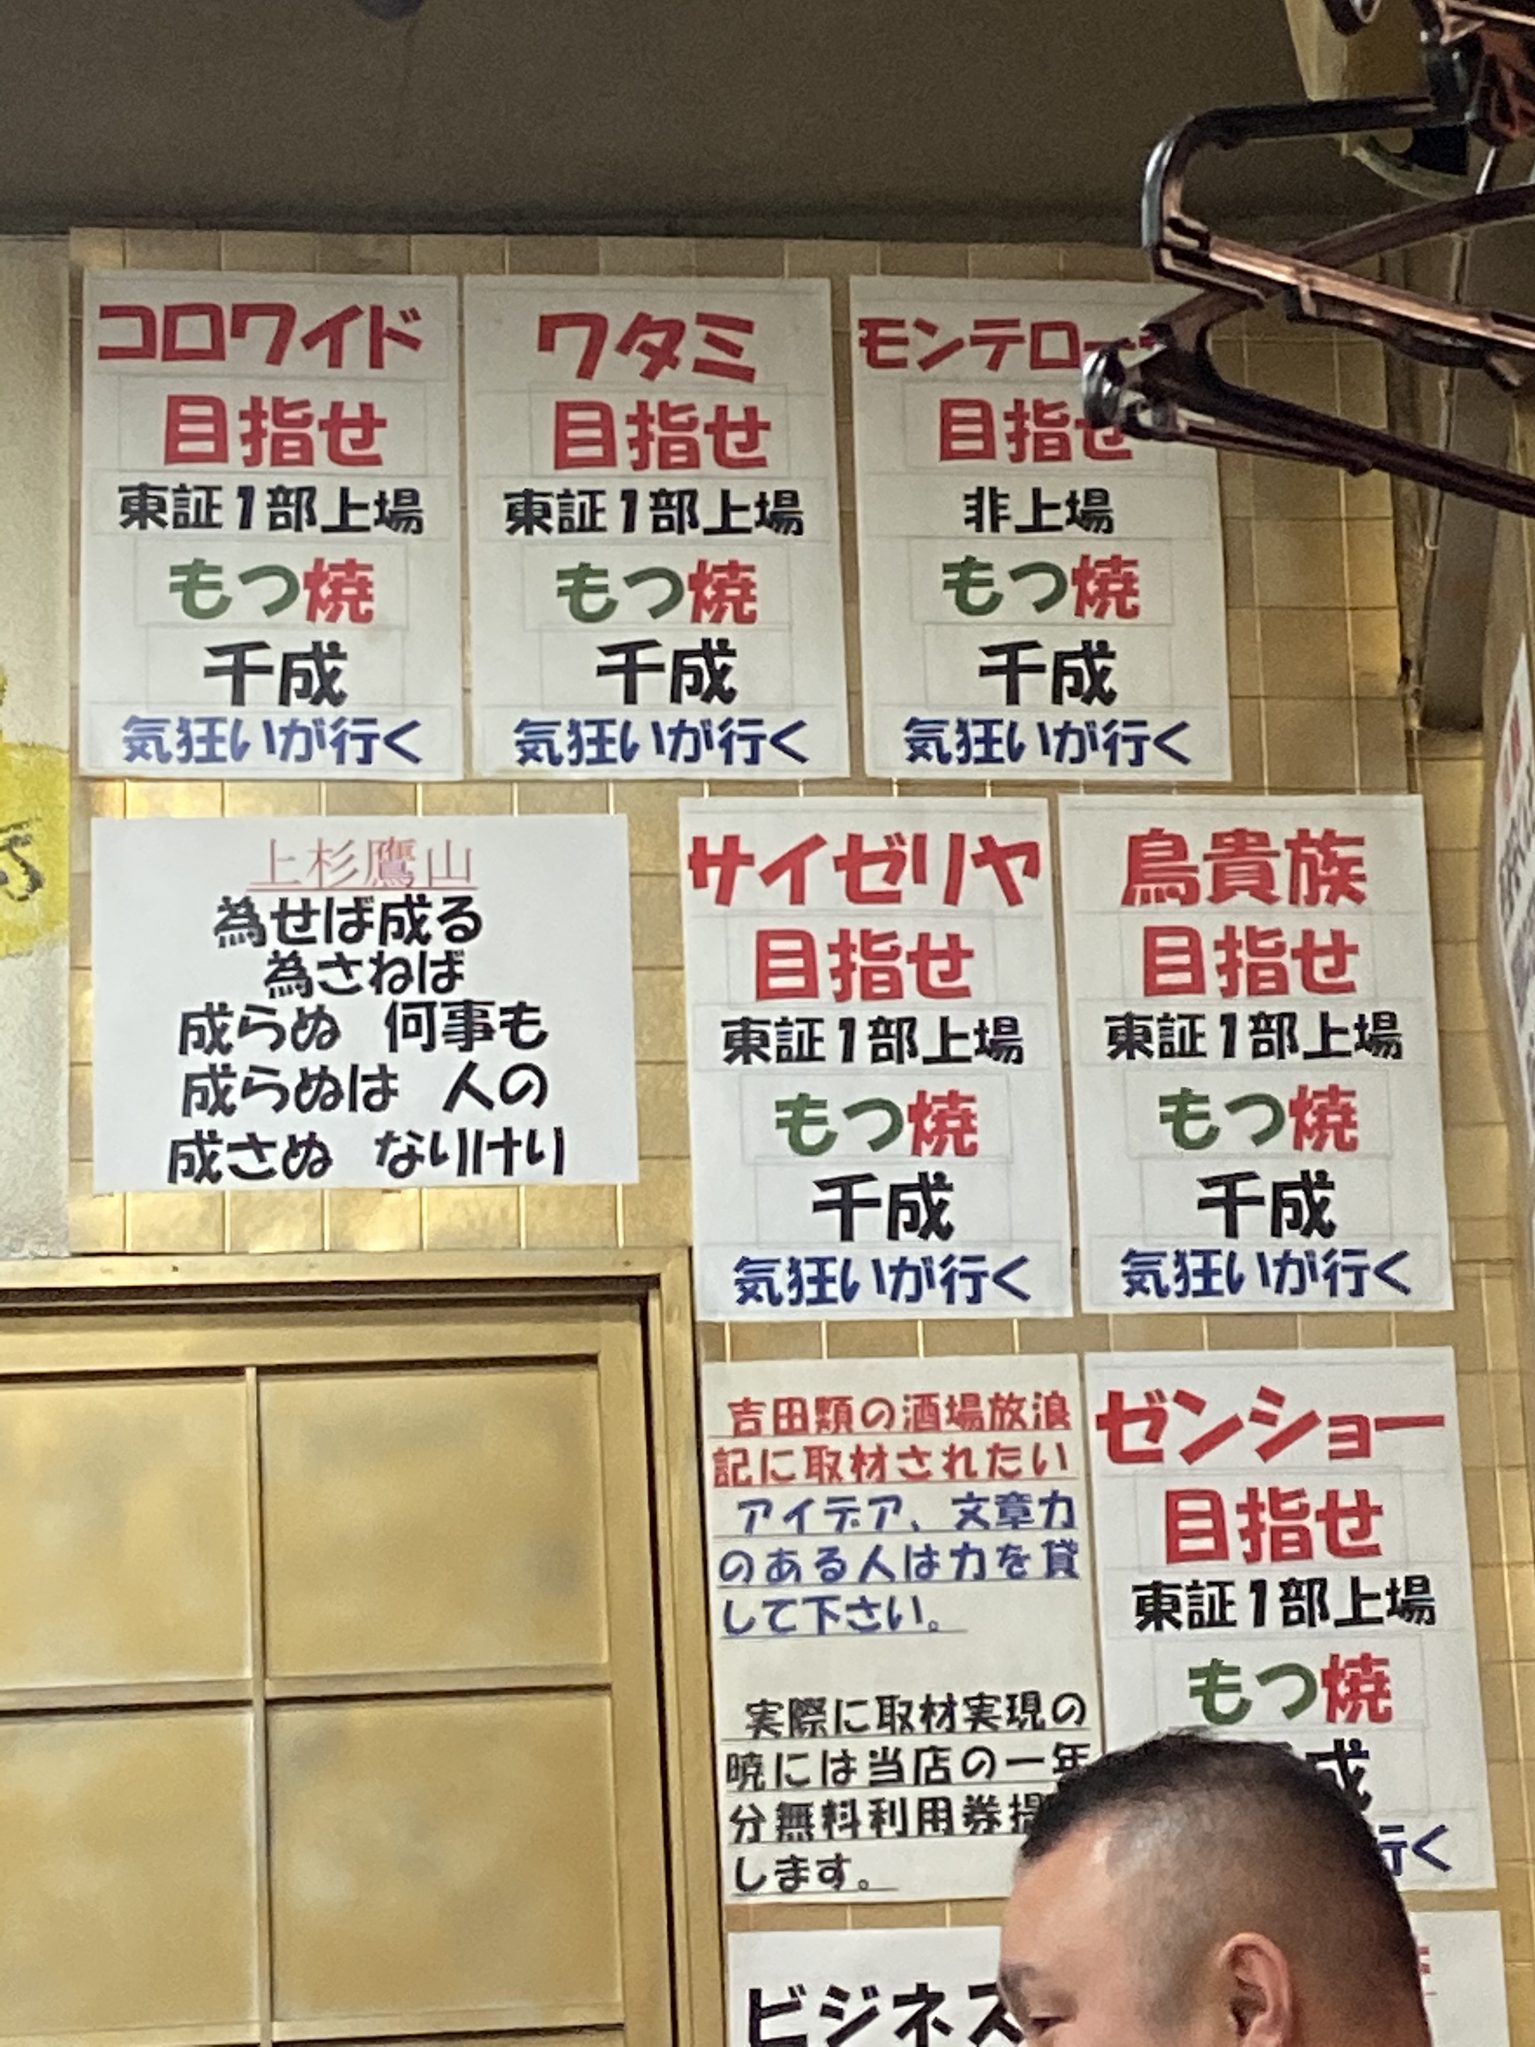 コロワイド
目指せ
東証1部上場
もつ焼
千成
気狂いが行く
ワタミ
目指せ
東証1部上場
もつ焼
千成
気狂いが行く
モンテロー
目指せ
非上場
もつ焼
千成
気狂いが行く
上杉鷹山
為せば成る
為さねば
成らぬ 何事も
成らぬは 人の
成さぬ なりけり
サイゼリヤ
目指せ
東証1部上場
もつ焼
千成
気狂いが行く
鳥貴族
目指せ
東証1部上場
もつ焼
千成
気狂いが行く
吉田類の酒場放浪
記に取材されたい
アイデア、文章力
のある人は力を貸
して下さい。
実際に取材実現の
暁には当店の一年
分無料利用券提
します。
ゼンショー
目指せ
東証1部上場
もつ焼
成
行く
ビジネス